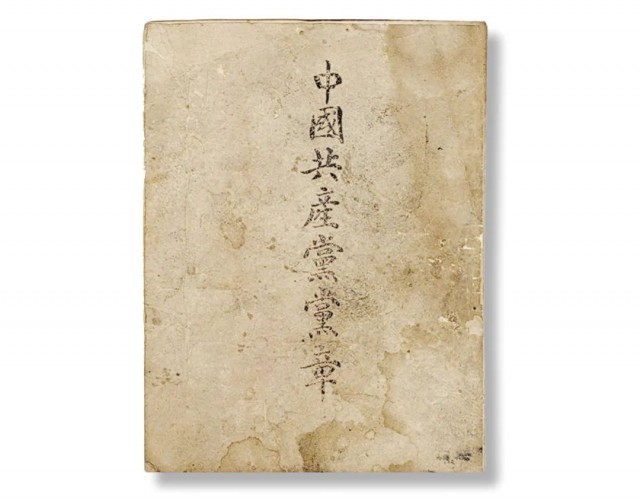 中國共産黨黨章